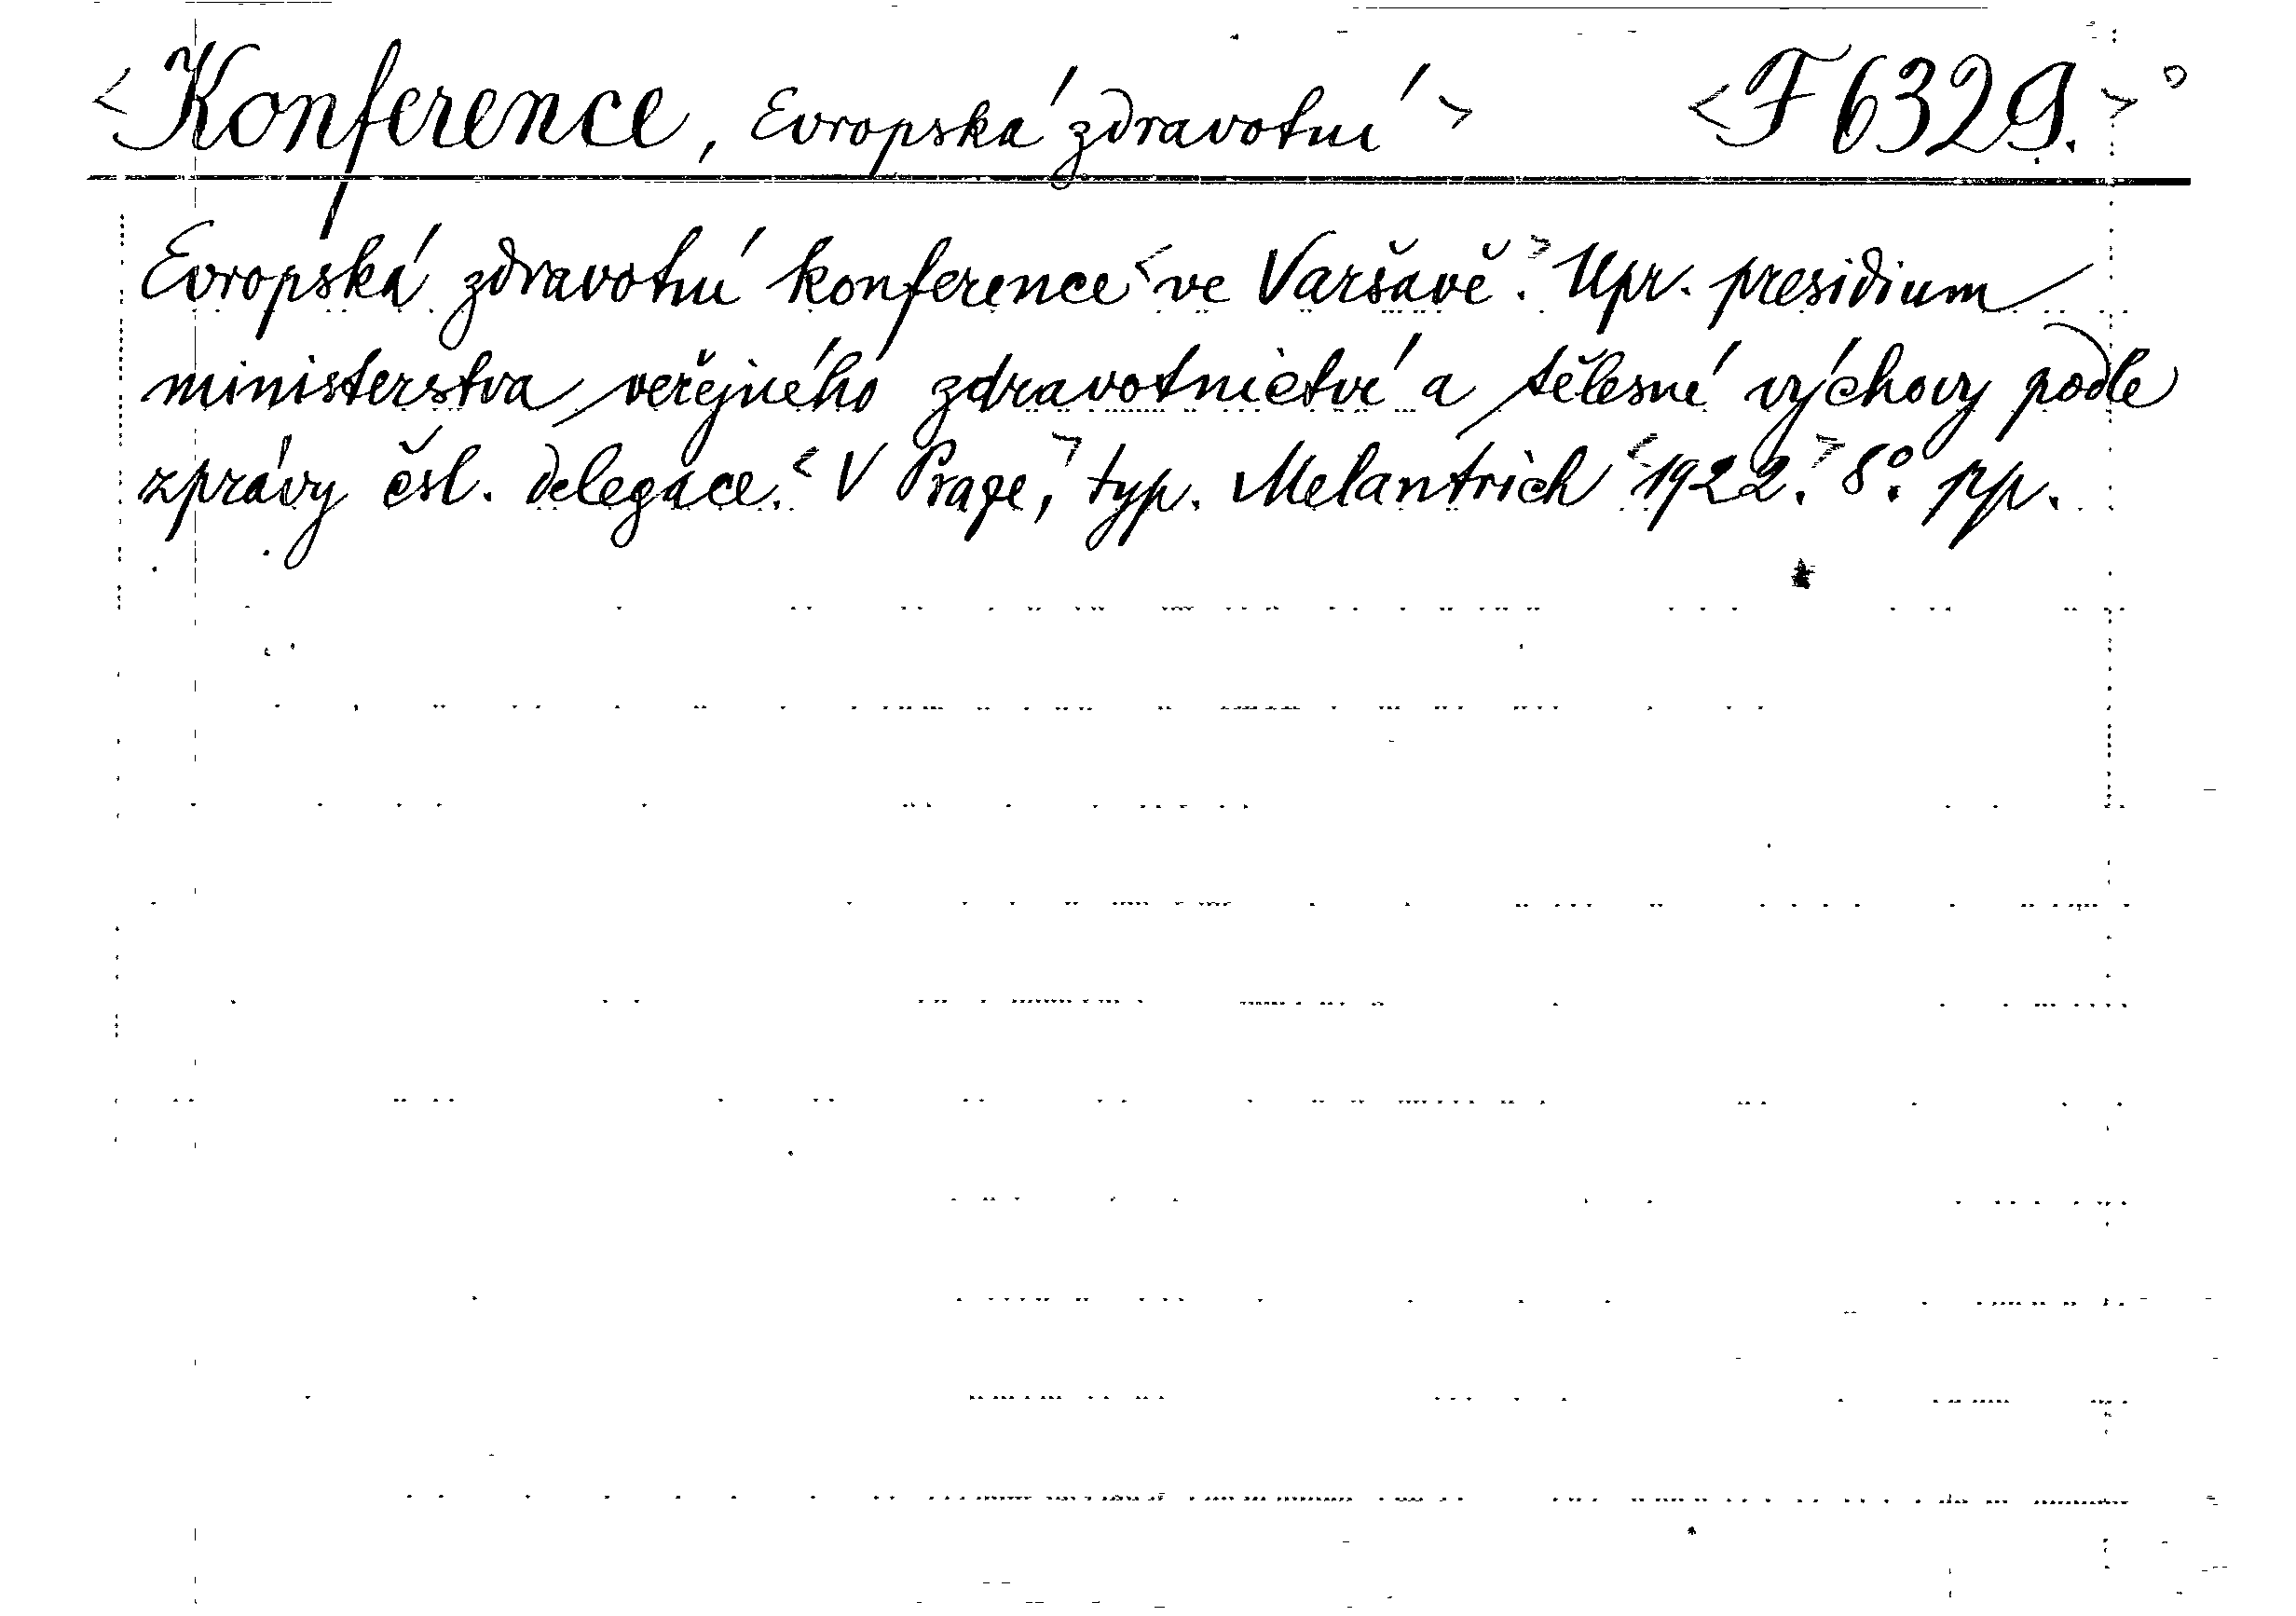 <Konference, Evropská zdravotní> <F 6329.>°
Evropská zdravotní konference <ve Varšavě.> Upr. presidium
ministerstva veřejného zdravotnictví a tělesné výchovy podle
zprávy čsl. delegace. <V Praze,> typ. Melantrich <1922.> 8°. pp.